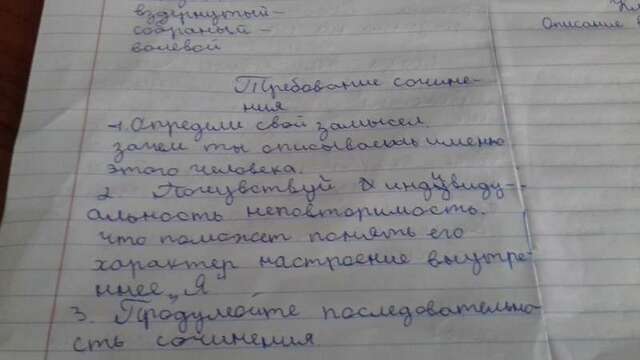 вздернутый-
собраный-
волевой
Описание
Требование сочине-
ния
1. Определи свой замысел.
зачем ты описываешь именно
этого человека.
2. Почувствуй индивиду-
альность неповторимость.
что поможет понять его
характер настроение внутре-
ннее „Я"
3. Продумайте последовательно-
сть сочинения